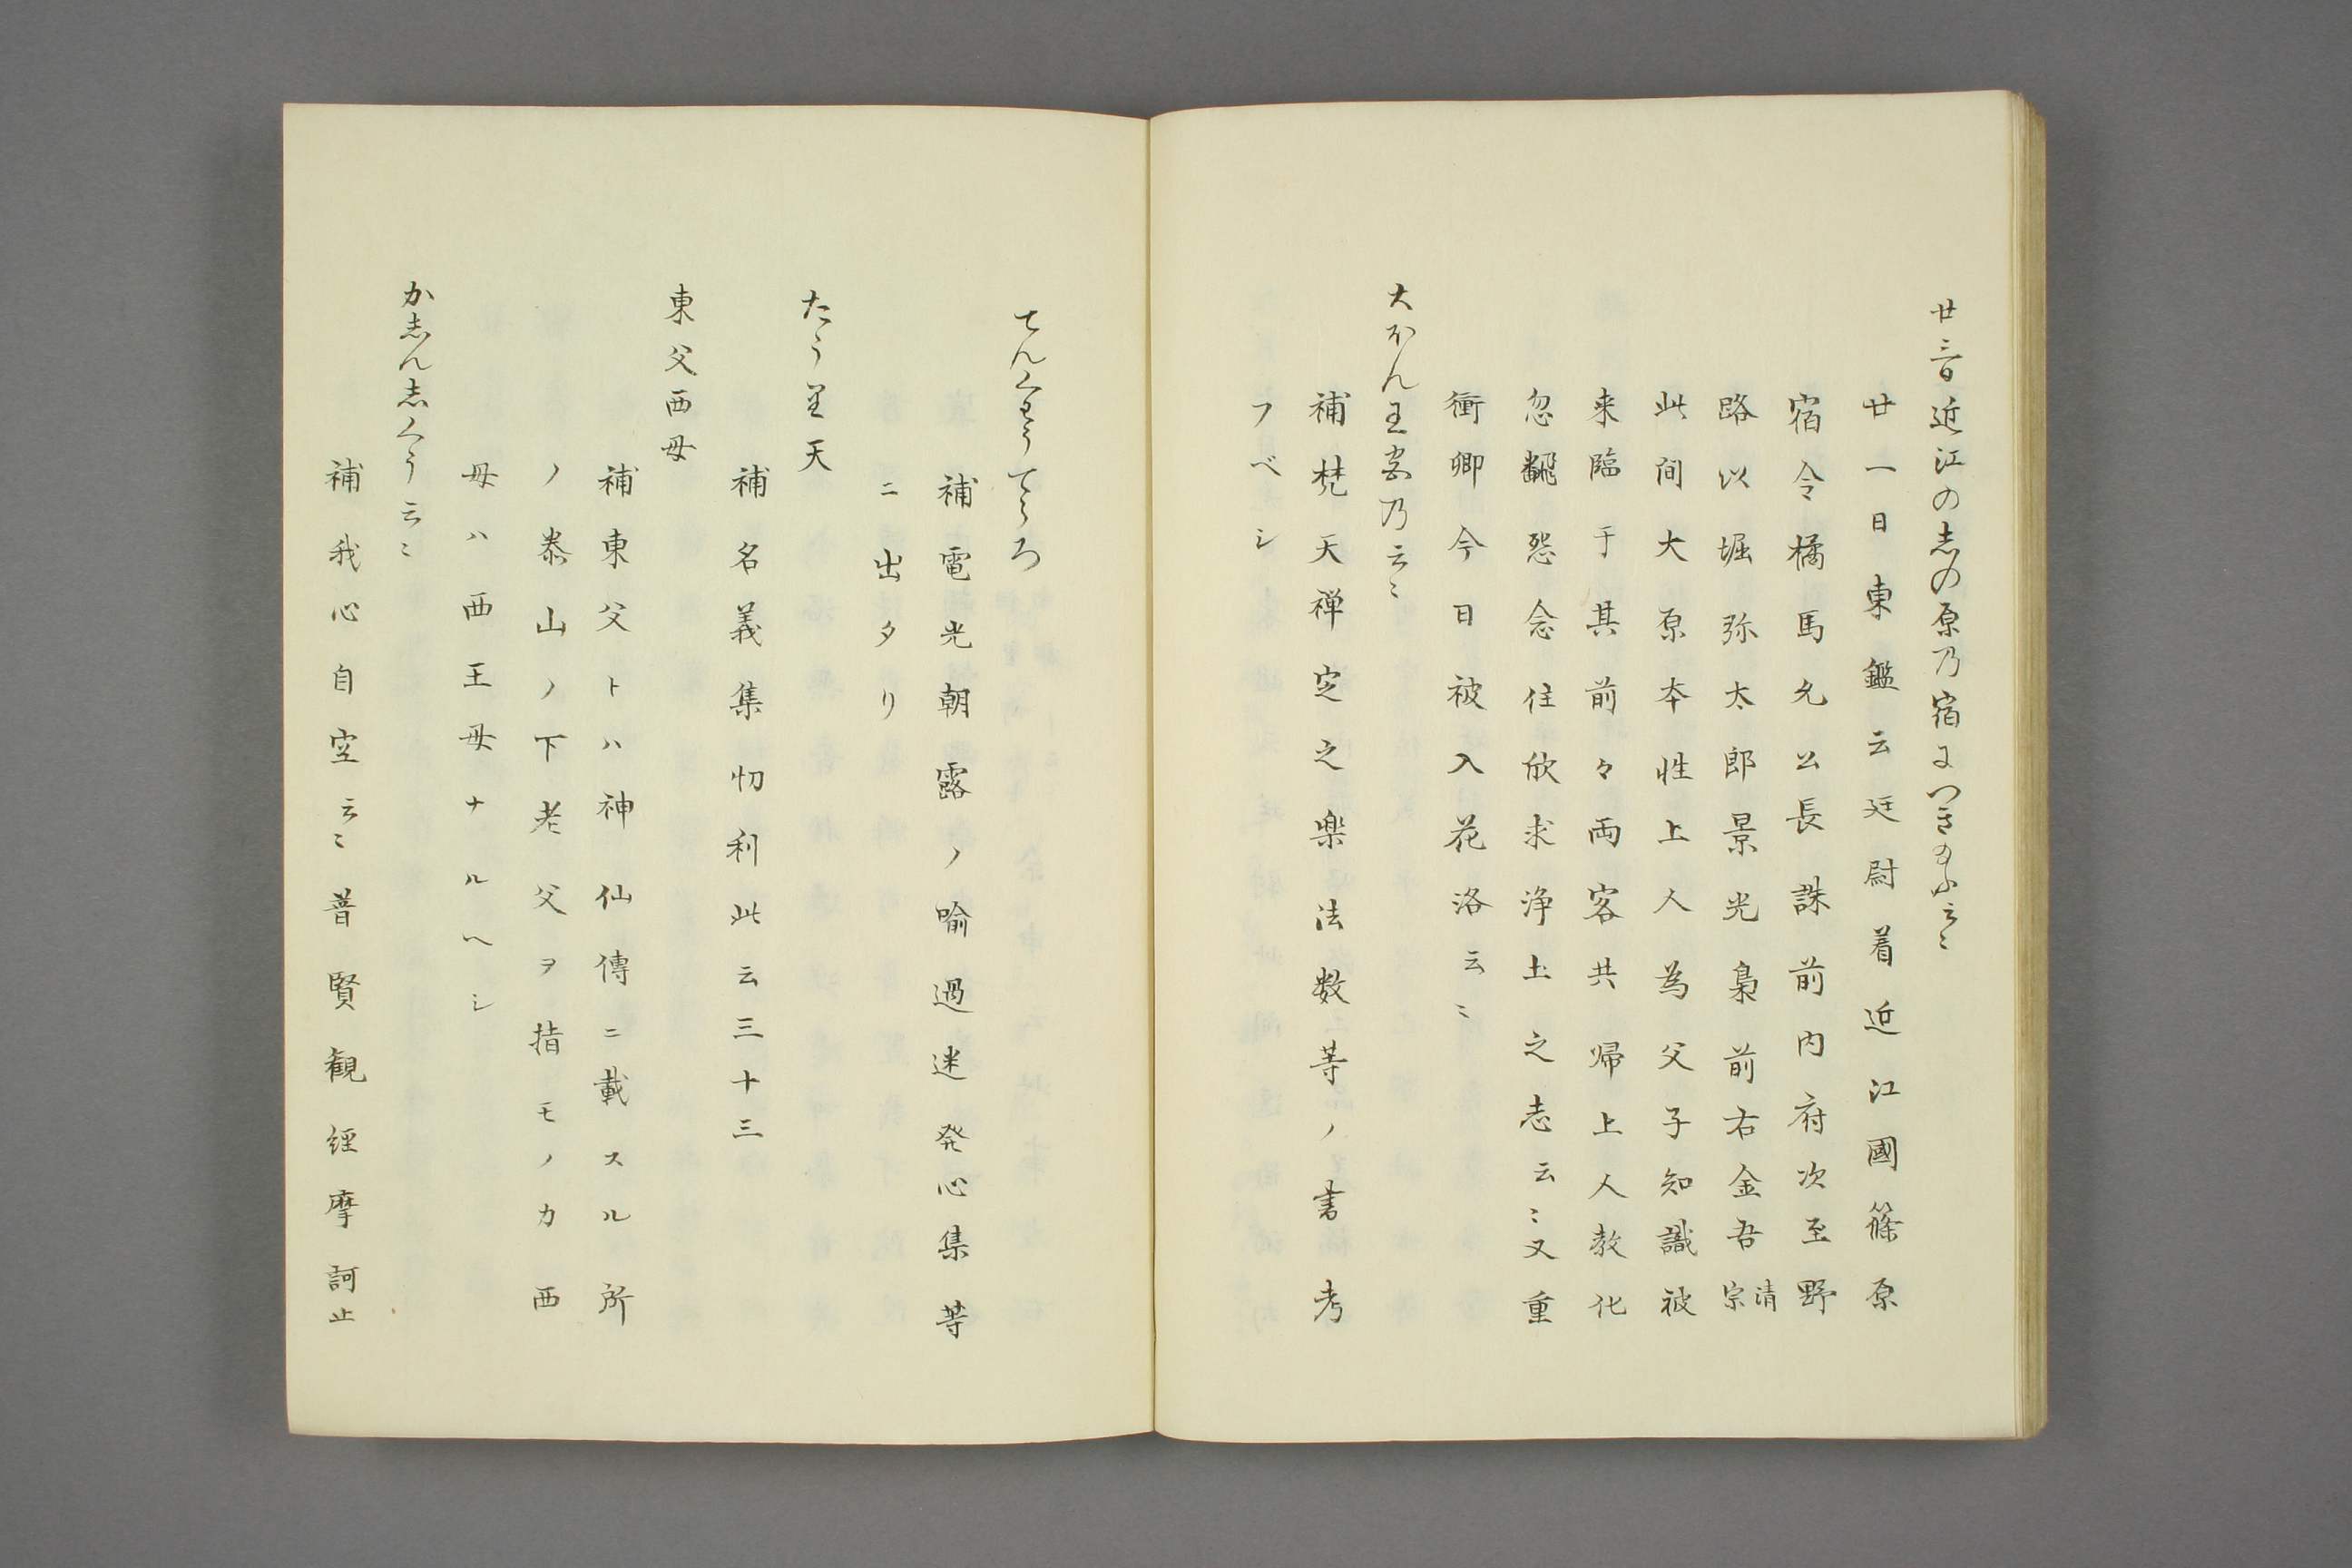 廿三日近江の志の原乃宿につき給ふ云〻
廿一日東鑑云廷尉着近江國篠原
宿令橘馬允公長誅前内府次至野
路以堀弥太郎景光梟前右金吾清宗
此間大原本性上人為父子知識被
来臨于其前々両客共帰上人教化
忽翻怨念住欣求浄土之志云〻又重
衡卿今日被入花洛云〻
大ぼん王宮乃云〻
補梵天禅定之楽法数等ノ書考
フベシ
てんくわうてうろ
補電光朝露ノ喩過迷発心集等
ニ出タリ
たうり天
補名義集忉利此云三十三
東父西母
補東父トハ神仙傳ニ載スル所
ノ泰山ノ下老父ヲ指モノカ西
母ハ西王母ナルヘシ
か志ん志くう云〻
補我心自空云〻普賢観経摩訶止